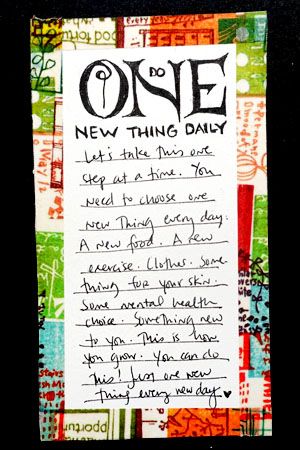 DO
ONE
NEW THING DAILY
Let's take this one
step at a time. You
need to choose one
new thing every day.
A new food. A new
exercise. Clothes. Some-
thing for your skin.
Some mental health
choice. Something new
to you. This is how
you grow. You can do
this! Just one new
thing every new day ♥